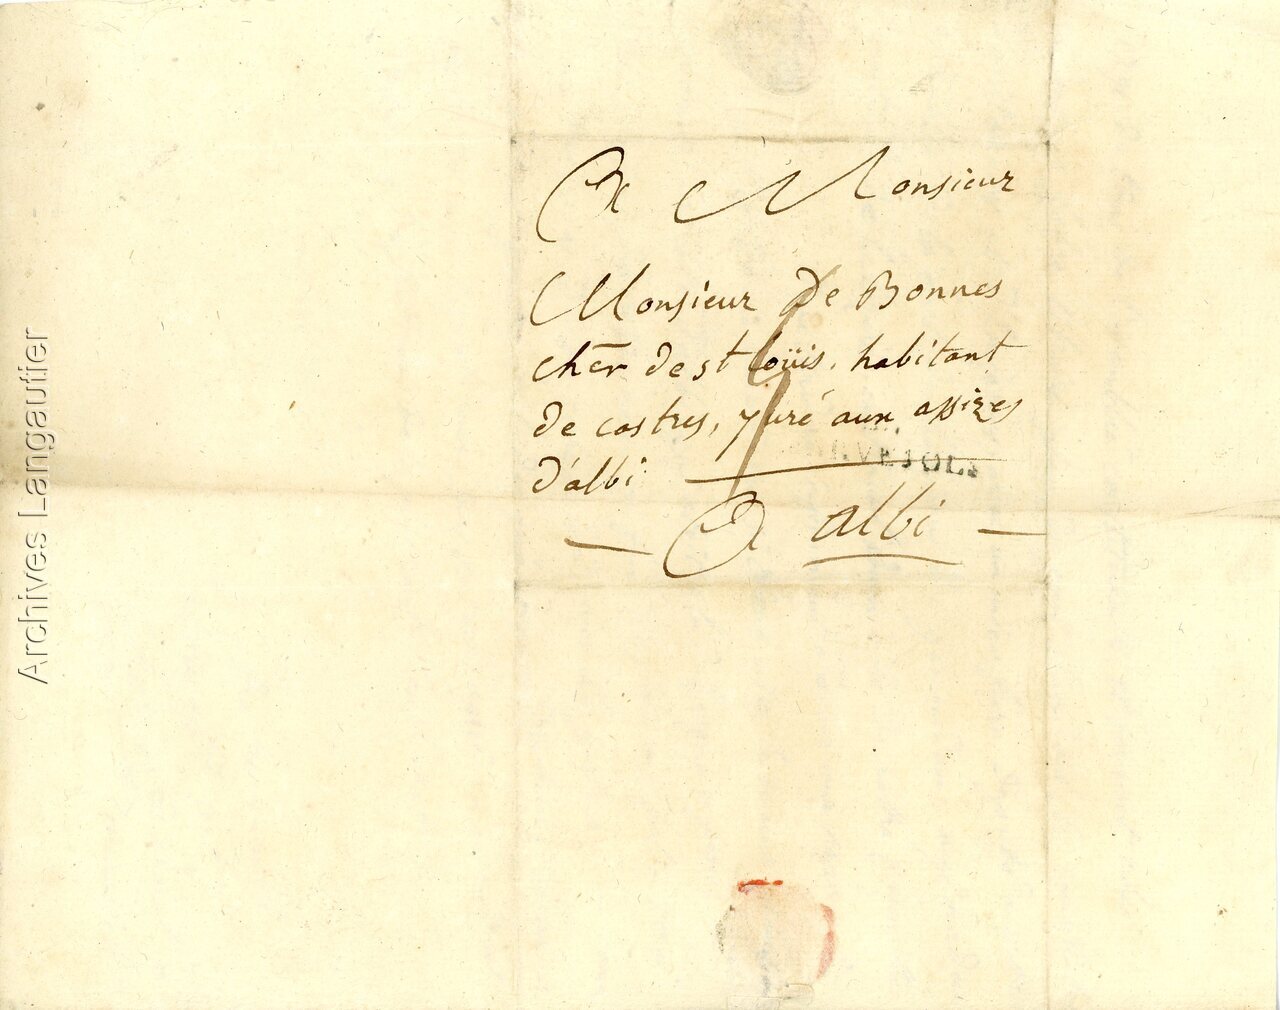 A Monsieur
Monsieur De Bonnes
cher de st Loüis, habitant
de castres, juré aux assizes
d'albi
A albi
Archives Langautier